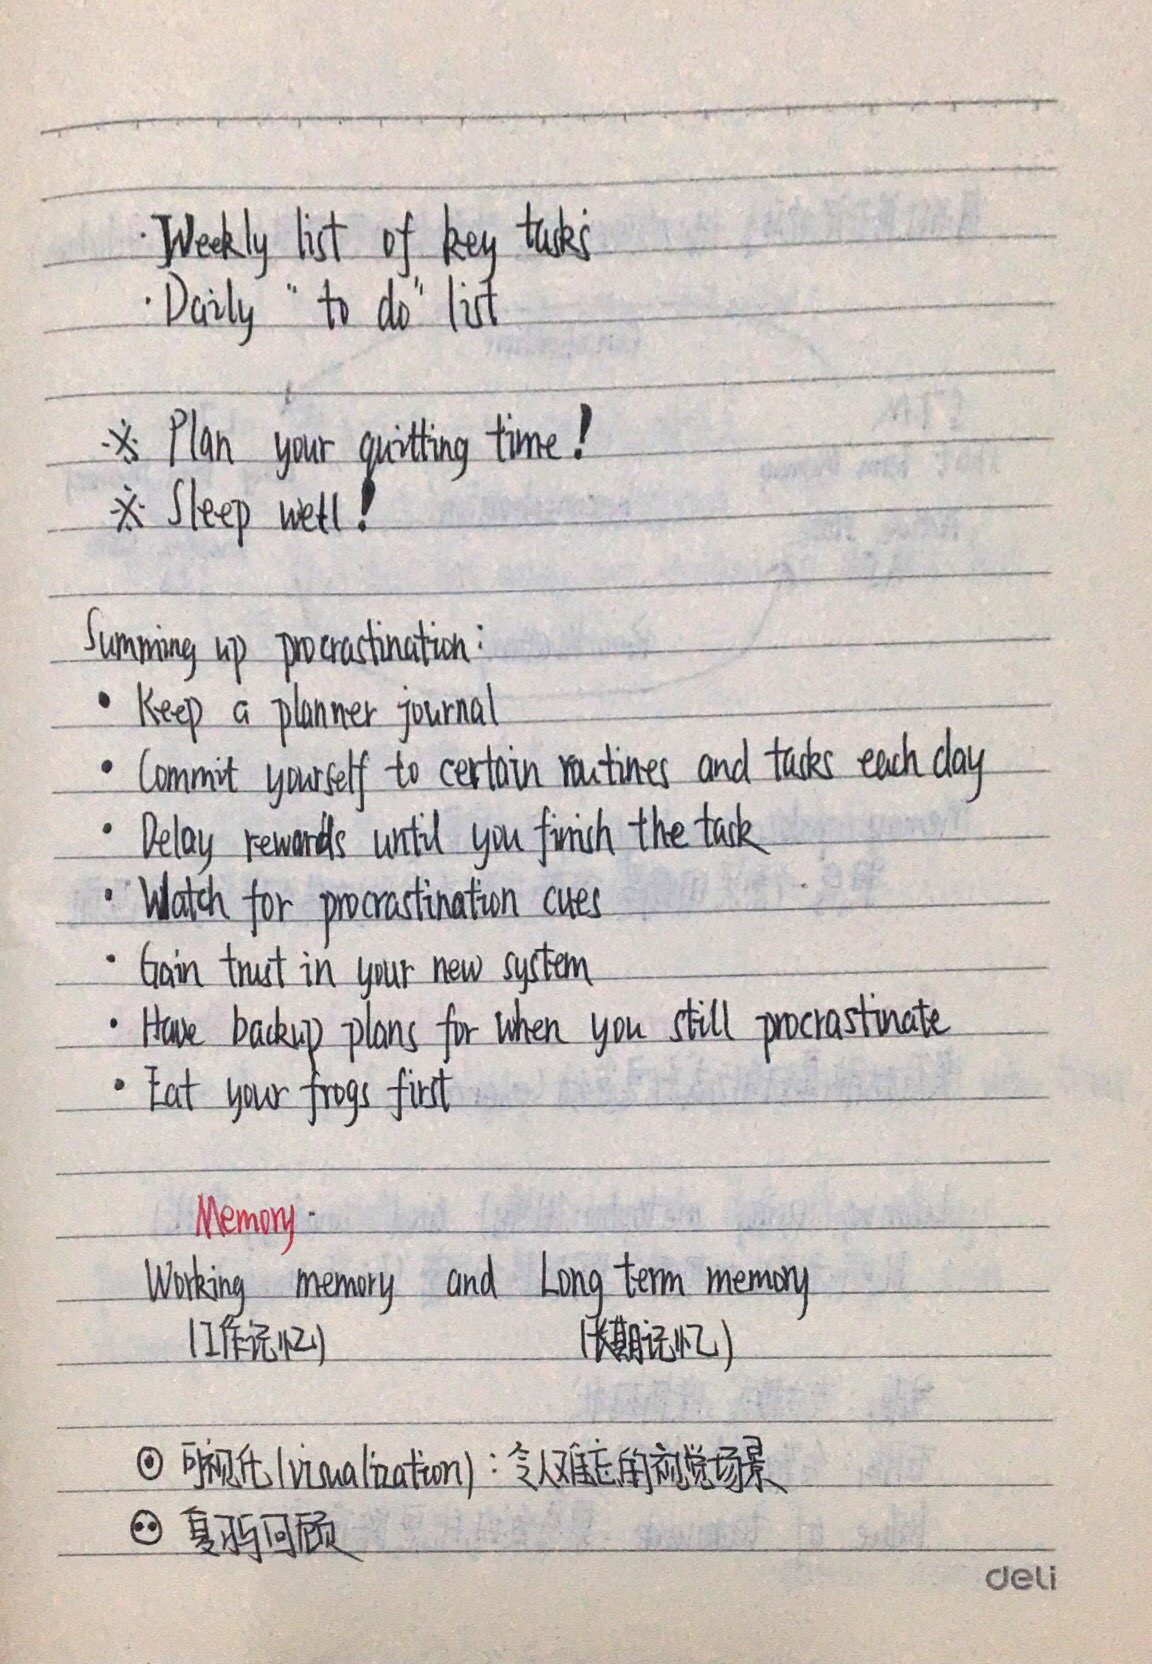 · Weekly list of key tasks
· Daily "to do" list
※ Plan your quitting time!
※ Sleep well!
Summing up procrastination:
• Keep a planner journal
• Commit yourself to certain routines and tasks each day
• Delay rewards until you finish the task
• Watch for procrastination cues
• Gain trust in your new system
• Have backup plans for when you still procrastinate
• Eat your frogs first
Memory·
Working memory and Long term memory
(工作记忆) (长期记忆)
⊙ 可视化(visualization):令人难忘的视觉场景
复习与回顾
deli